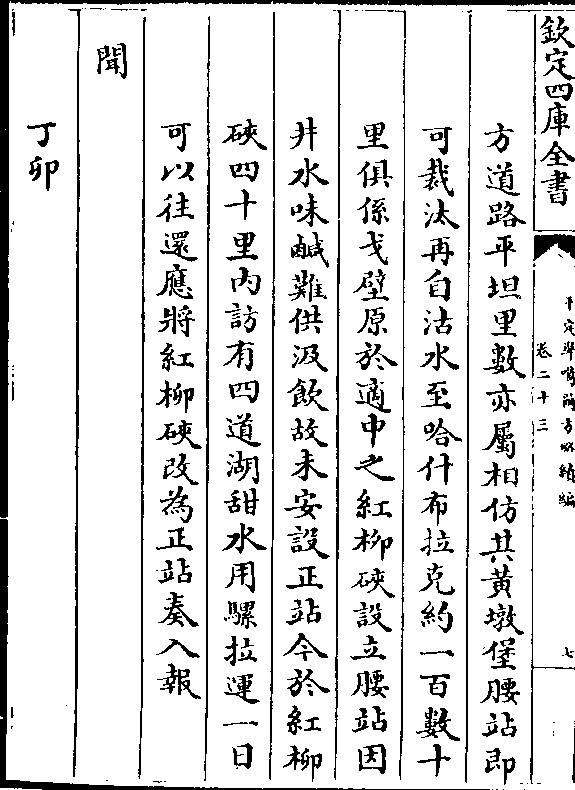 欽定四庫全書
平定準噶爾方略續編
卷二十三
七
方道路平坦里數亦屬相仿其黃墩堡腰站即
可裁汰再自沽水至哈什布拉克約一百數十
里俱係戈壁原於適中之紅柳硤設立腰站因
井水味鹹難供汲飲故未安設正站今於紅柳
硤四十里內訪有四道湖甜水用騾拉運一日
可以往還應將紅柳硤改為正站奏入報
聞
丁卯